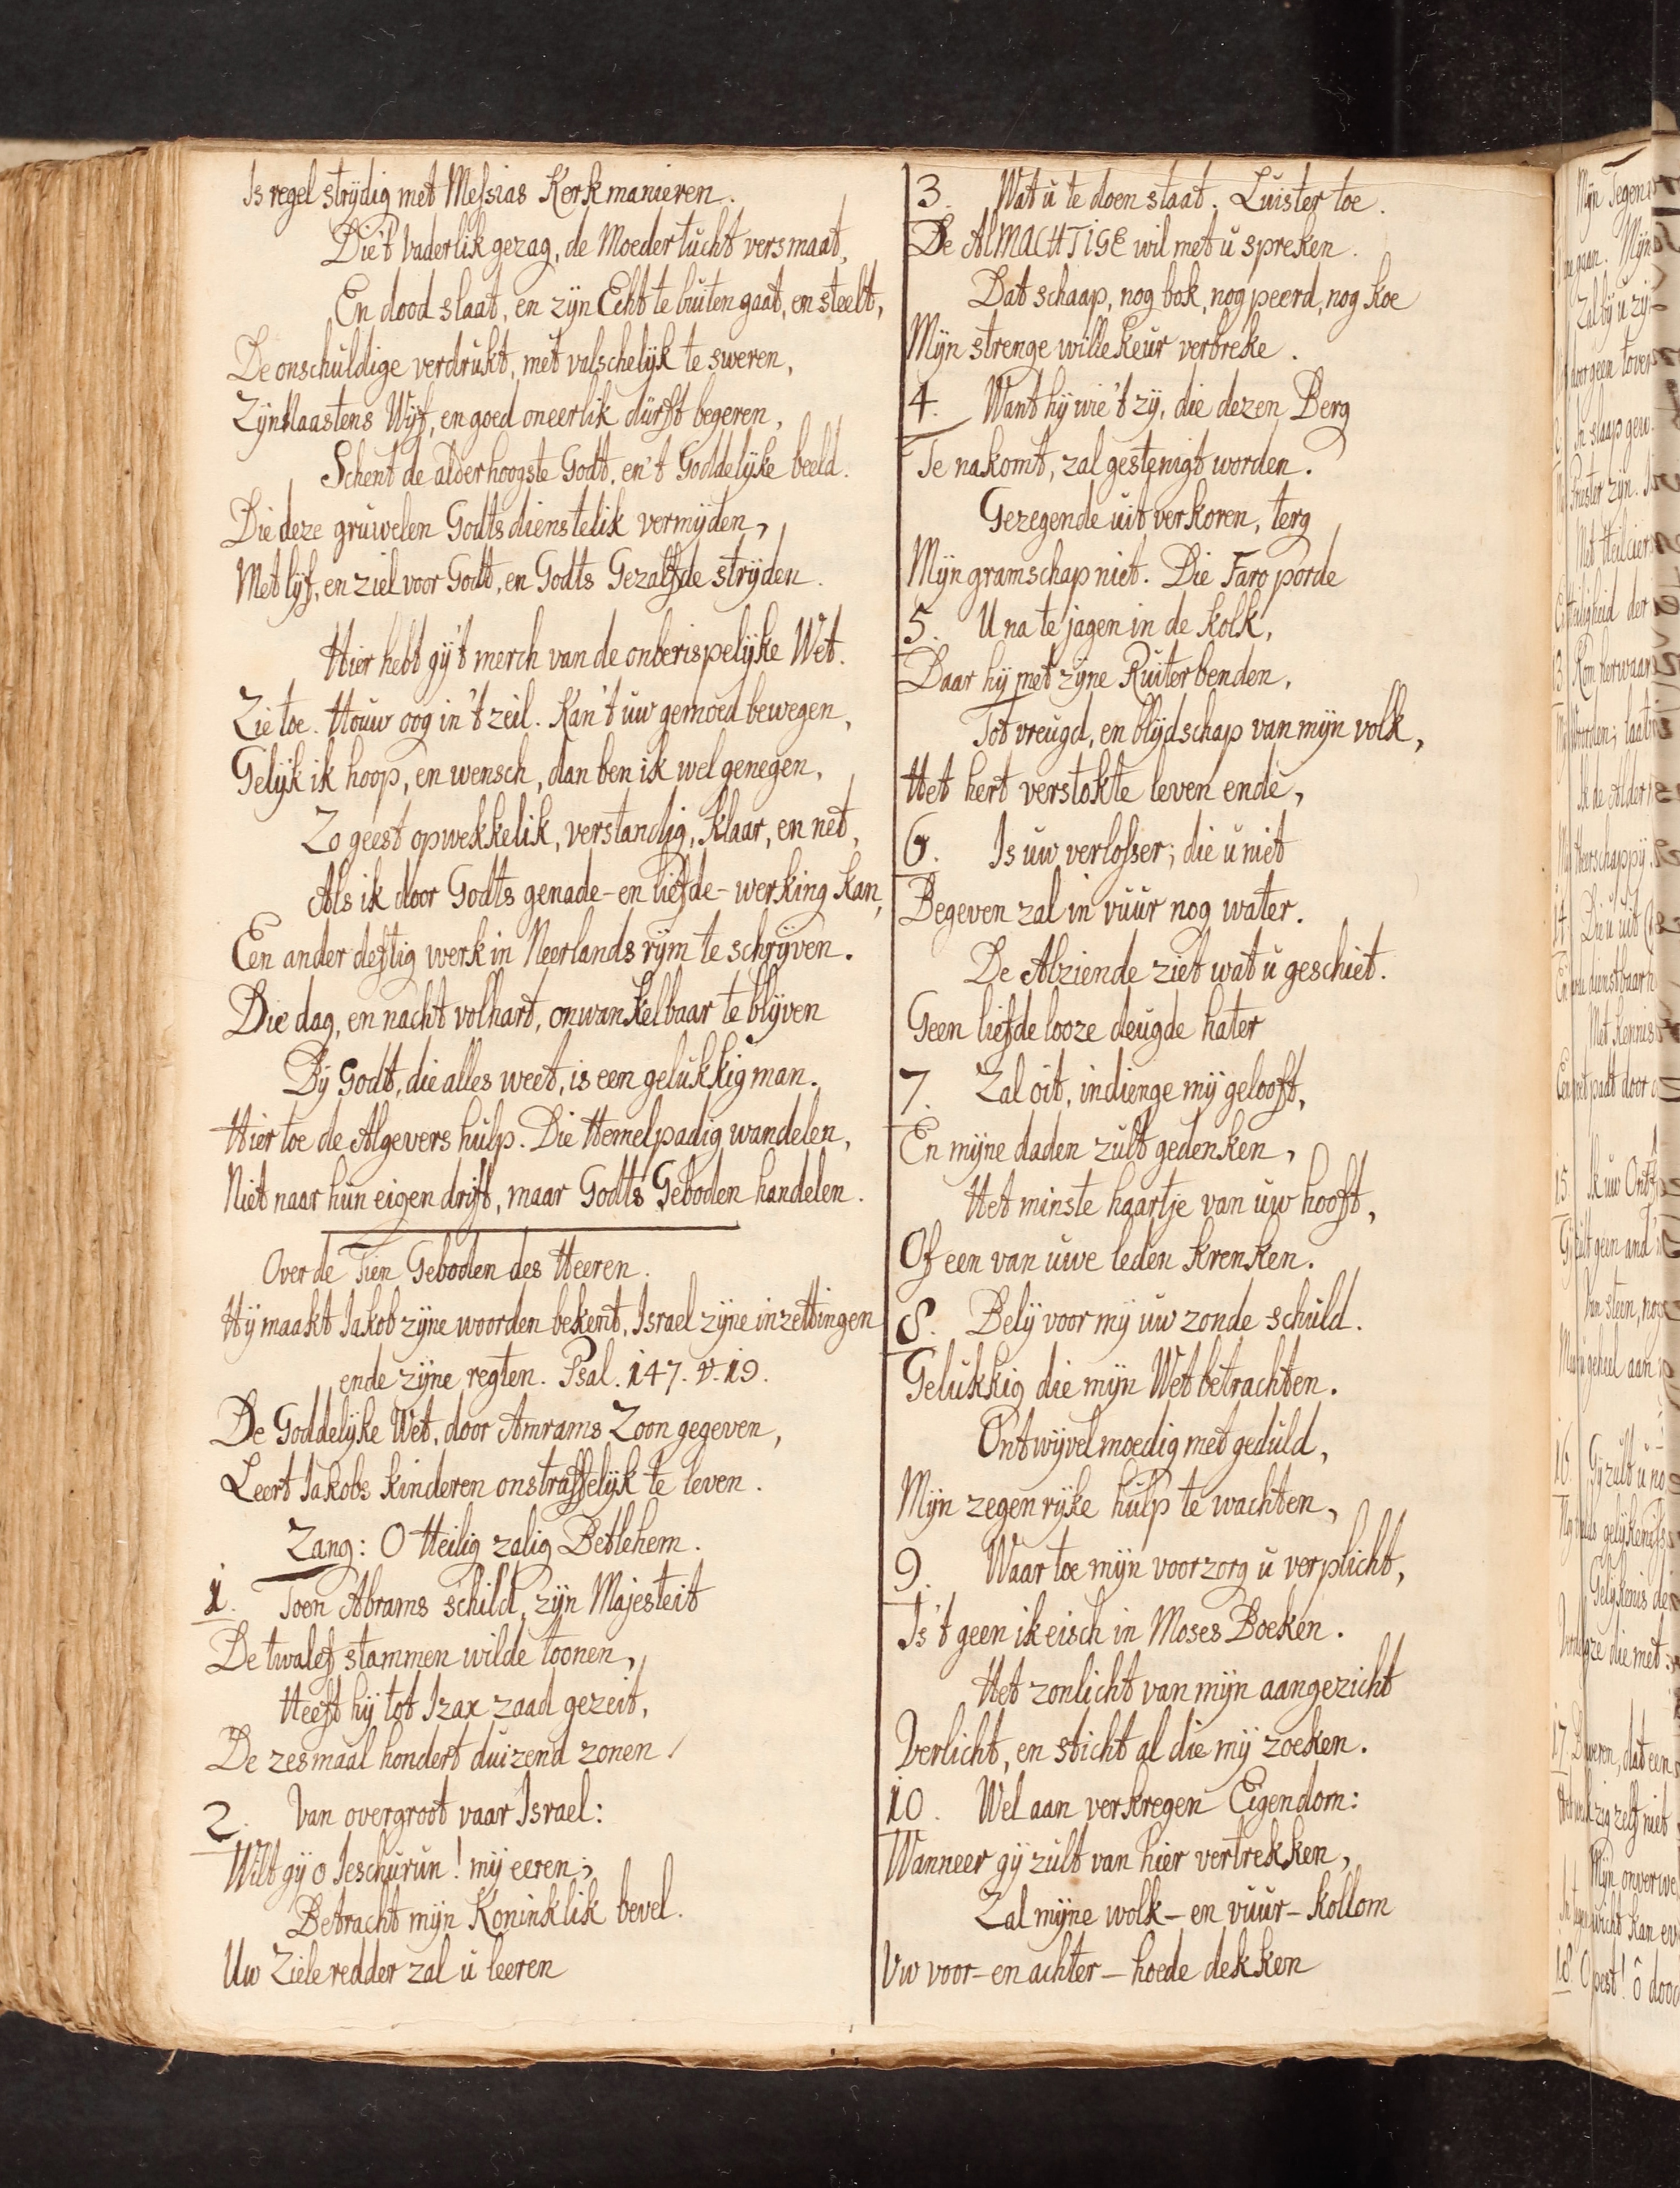 Is regel strydig met Messias Kerkmanieren.
Die 't vaderlik gezag, de Moedertucht versmaat,
En dood slaat, en zyn Echt te buiten gaat, en steelt,
De onschuldige verdrukt, met valschelyk te sweren,
Zyn Naastens Wyf, en goed oneerlik dürft begeren,
Schent de alderhoogste Godt, en 't Goddelyke beeld.
Die deze grüwelen Godtsdienstelik vermyden,
Met lyf, en ziel voor Godt, en Godts Gezalfde stryden.
Hier hebt gy 't merch van de onberispelyke Wet.
Zie toe. Houw oog in 't zeil. Kan 't uw gemoed bewegen,
Gelyk ik hoop, en wensch, dan ben ik wel genegen,
Zo geest opwekkelik, verstandig, klaar, en net,
Als ik door Godts genade-en liefde-werking kan,
Een ander deftig werk in Neerlands rym te schryven.
Die dag, en nacht volhart, onwankelbaar te blyven
By Godt, die alles weet, is een gelukkig man.
Hier toe de Algevers hulp. Die Hemelpadig wandelen,
Niet naar hun eigen drift, maar Godts Geboden handelen.
Over de Tien Geboden des Heeren.
Hy maakt Jakob zyne woorden bekent, Israel zyne inzettingen
ende zyne regten. Psal. 147. v. 19.
De Goddelyke Wet, door Amrams Zoon gegeven,
Leert Jakobs kinderen onstraffelyk te leven.
Zang: O Heilig zalig Betlehem.
1. Toen Abrams schild, zyn Majesteit
De twalef stammen wilde toonen,
Heeft hy tot Izax zaad gezeit,
De zesmaal hondert duizend zonen
2. Van overgroot vaar Israel:
Wilt gy o Jeschurun! my eeren;
Betracht myn Koninklik bevel.
Uw Ziele redder zal u leeren
3. Wat u te doen staat. Luister toe.
De AlMACHTIGE wil met u spreken.
Dat schaap, nog bok, nog peerd, nog koe
Myn strenge wille keur verbreke.
4. Want hy wie 't zy, die dezen Berg
Te na komt, zal gestenigt worden.
Gezegende uit verkoren, terg
Myn gramschap niet. Die Faro porde
5. U na te jagen in de kolk,
Daar hy met zyne Ruiterbenden,
Tot vreugd, en blydschap van myn volk,
Het hert verstokte leven ende,
6. Is uw verlosser; die u niet
Begeven zal in vuur nog water.
De Alziende ziet wat u geschiet.
Geen liefde looze deugde hater
7. Zal oit, indienge my gelooft,
En myne daden zult gedenken,
Het minste haartje van uw hooft,
Of een van uwe leden krenken.
8. Bely voor my uw zonde schuld.
Gelukkig die myn Wet betrachten.
Ontwyvelmoedig met geduld,
Myn zegenryke hulp te wachten,
9. Waar toe myn voorzorg u verplicht,
Is 't geen ik eisch in Moses Boeken.
Het zonlicht van myn aangezicht
Verlicht, en sticht al die my zoeken.
10. Wel aan verkregen Eigendom:
Wanneer gy zult van hier vertrekken,
Zal myne wolk-en vuur-kollom
Uw voor-en achter-hoede dekken